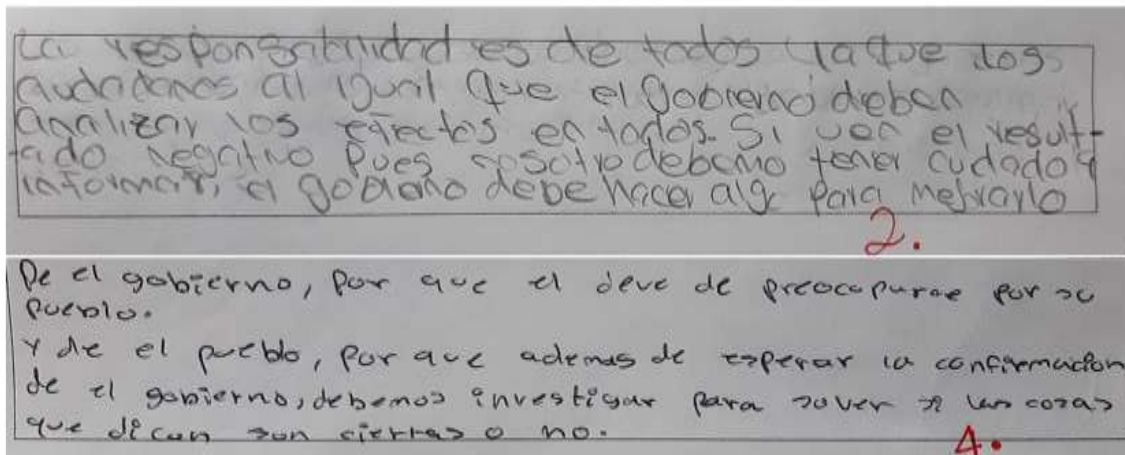 La responsabilidad es de todos ya que los
ciudadanos al igual que el gobierno deben
analizar los efectos en todos. Si ven el result-
tado negativo pues nosotro debemo tener cudado y
informar, el gobierno debe hacer algo para mejorarlo
2.
De el gobierno, por que el deve de preocuparse por su
pueblo.
Y de el pueblo, por que ademas de esperar la confirmacion
de el gobierno, debemos investigar para saver si las cosas
que dicen son ciertas o no.
4.